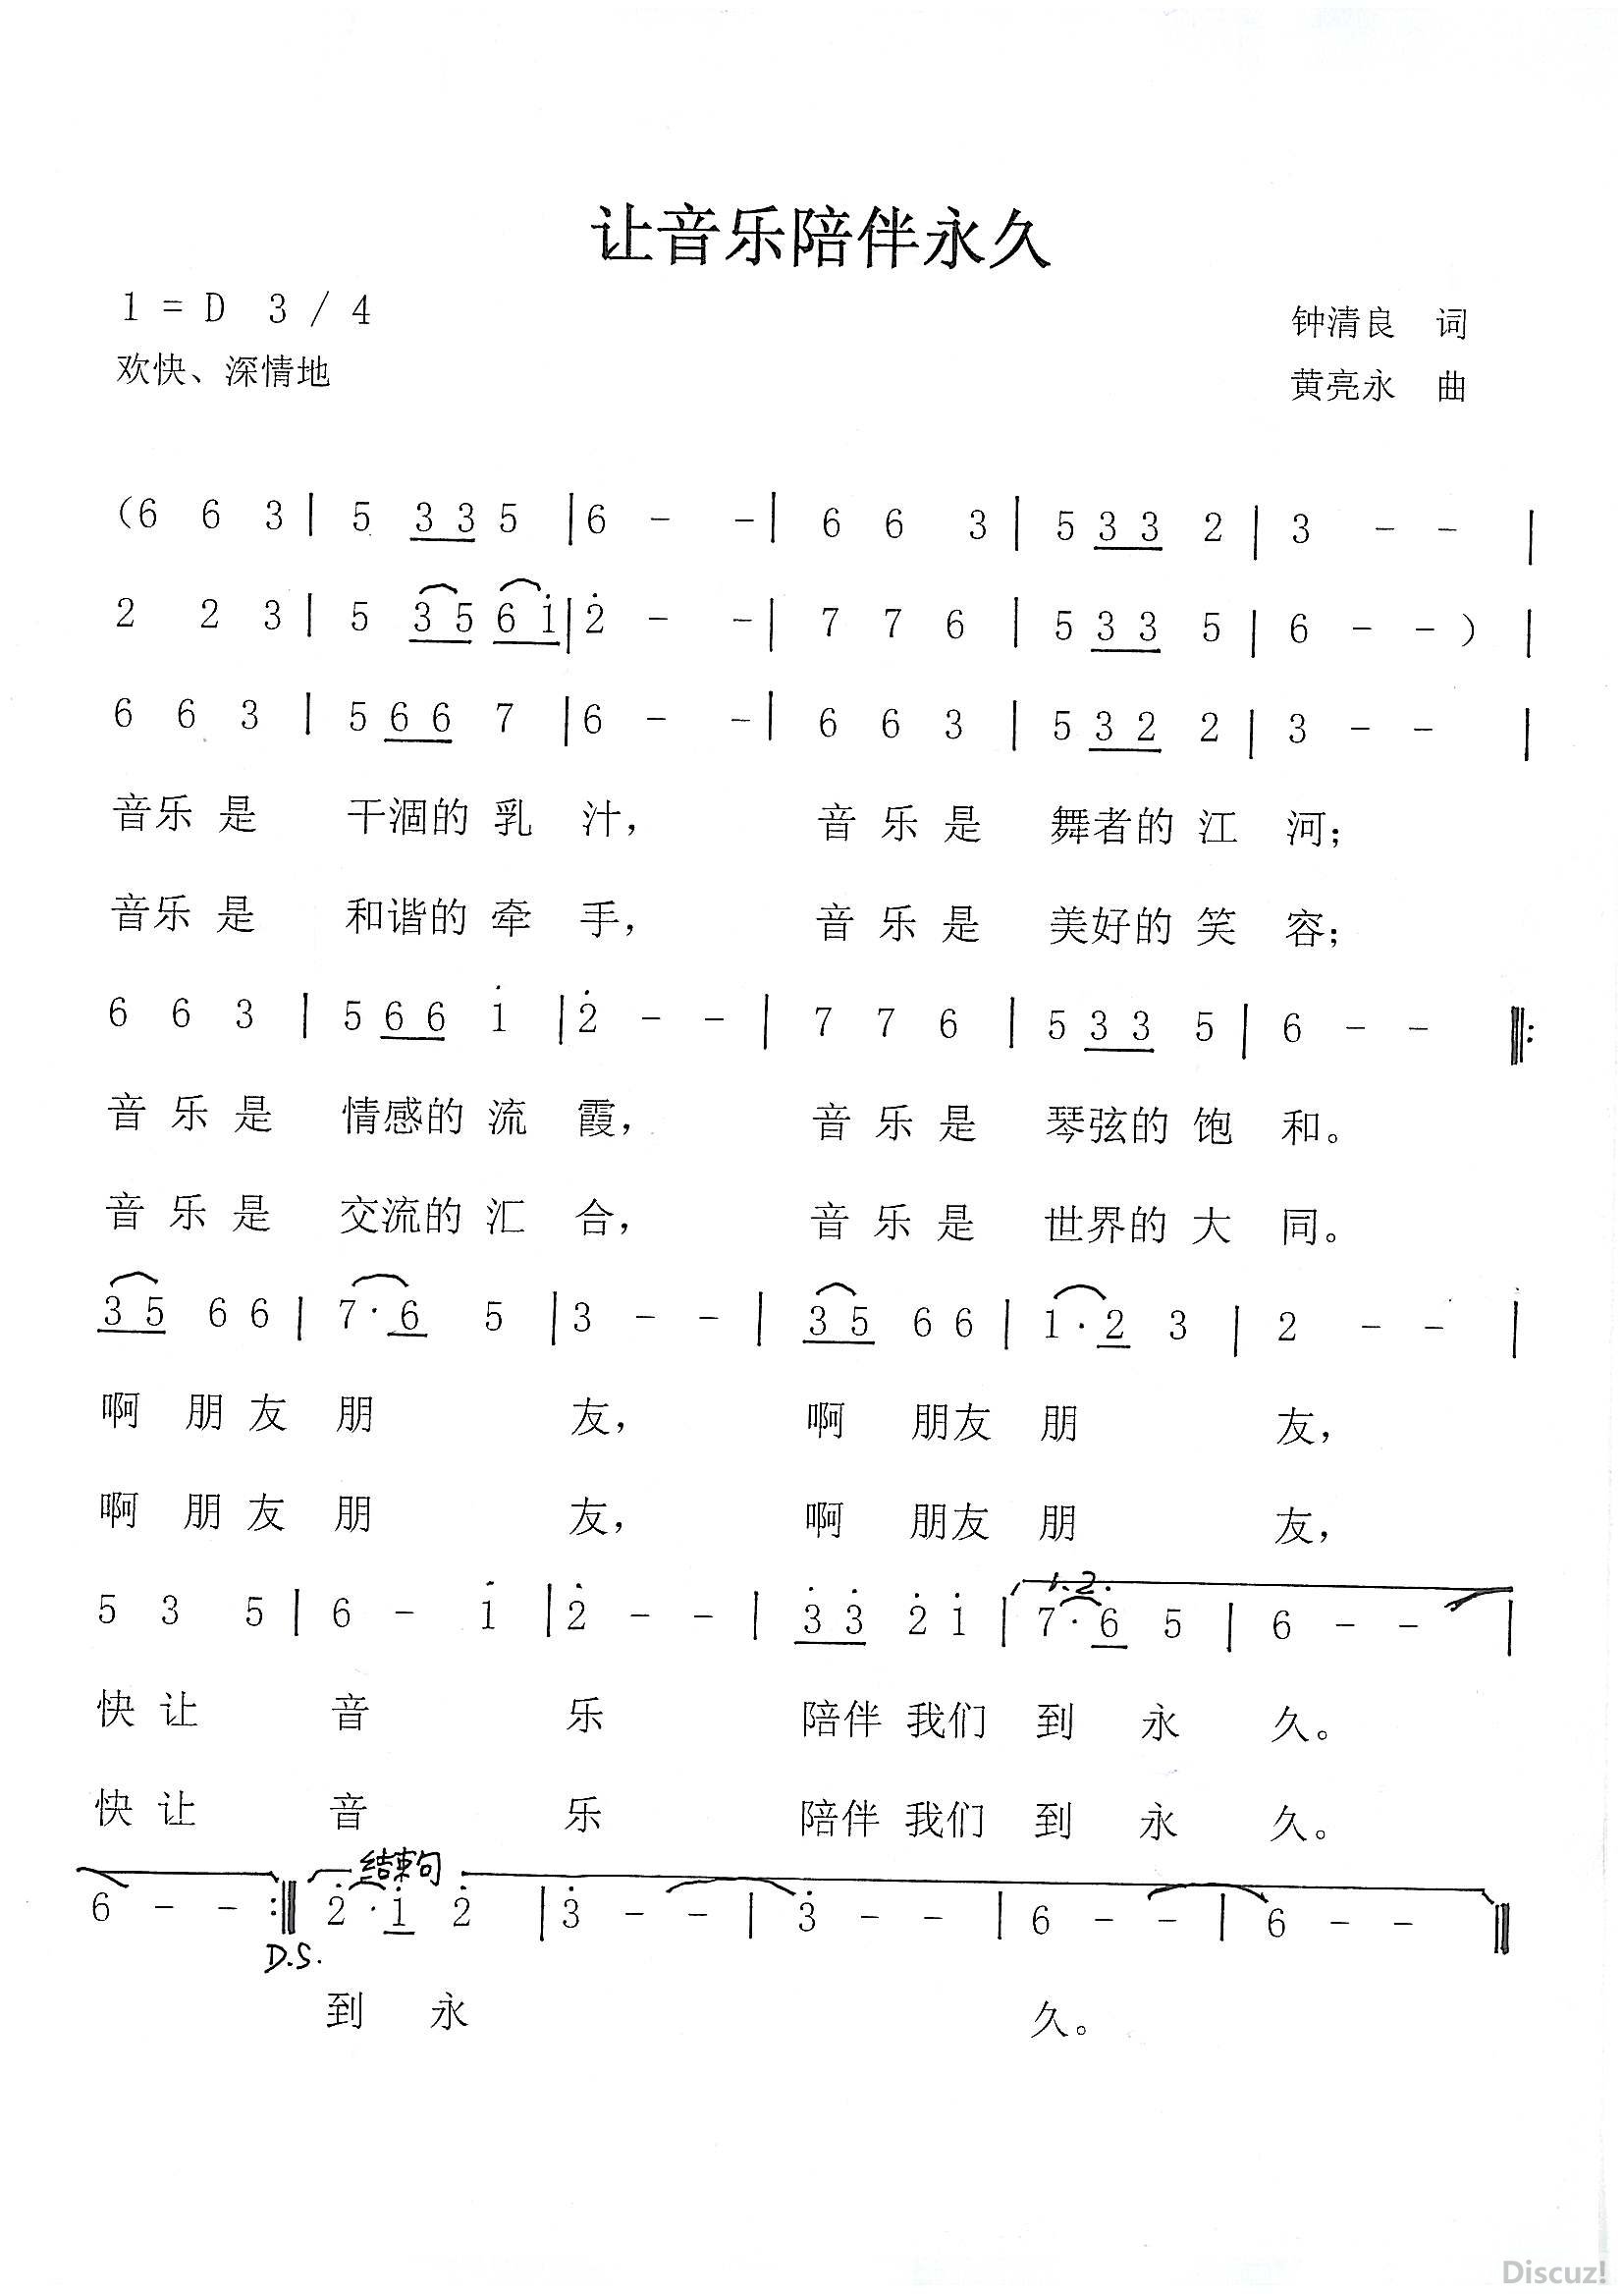 让音乐陪伴永久
1 = D 3 / 4
钟清良 词
欢快、深情地
黄亮永 曲
(6 6 3 | 5 3 3 5 | 6 - - | 6 6 3 | 5 3 3 2 | 3 - - |
2 2 3 | 5 3 5 6 i | 2̇ - - | 7 7 6 | 5 3 3 5 | 6 - - ) |
6 6 3 | 5 6 6 7 | 6 - - | 6 6 3 | 5 3 2 2 | 3 - - |
音乐 是 干涸的 乳 汁, 音 乐 是 舞者的 江 河;
音乐 是 和谐的 牵 手, 音 乐 是 美好的 笑 容;
6 6 3 | 5 6 6 i | 2̇ - - | 7 7 6 | 5 3 3 5 | 6 - - ‖:
音 乐 是 情感的 流 霞, 音 乐 是 琴弦的 饱 和。
音 乐 是 交流的 汇 合, 音 乐 是 世界的 大 同。
3 5 6 6 | 7 · 6 5 | 3 - - | 3 5 6 6 | 1 · 2 3 | 2 - - |
啊 朋 友 朋 友, 啊 朋友 朋 友,
啊 朋 友 朋 友, 啊 朋友 朋 友,
1.2.
5 3 5 | 6 - i | 2̇ - - | 3̇ 3̇ 2̇ i | 7 · 6 5 | 6 - - |
快 让 音 乐 陪伴 我们 到 永 久。
快 让 音 乐 陪伴 我们 到 永 久。
结束句
6 - - :‖ 2̇ · i 2̇ | 3̇ - - | 3̇ - - | 6 - - | 6 - - ‖
D.S.
到 永 久。
Discuz!